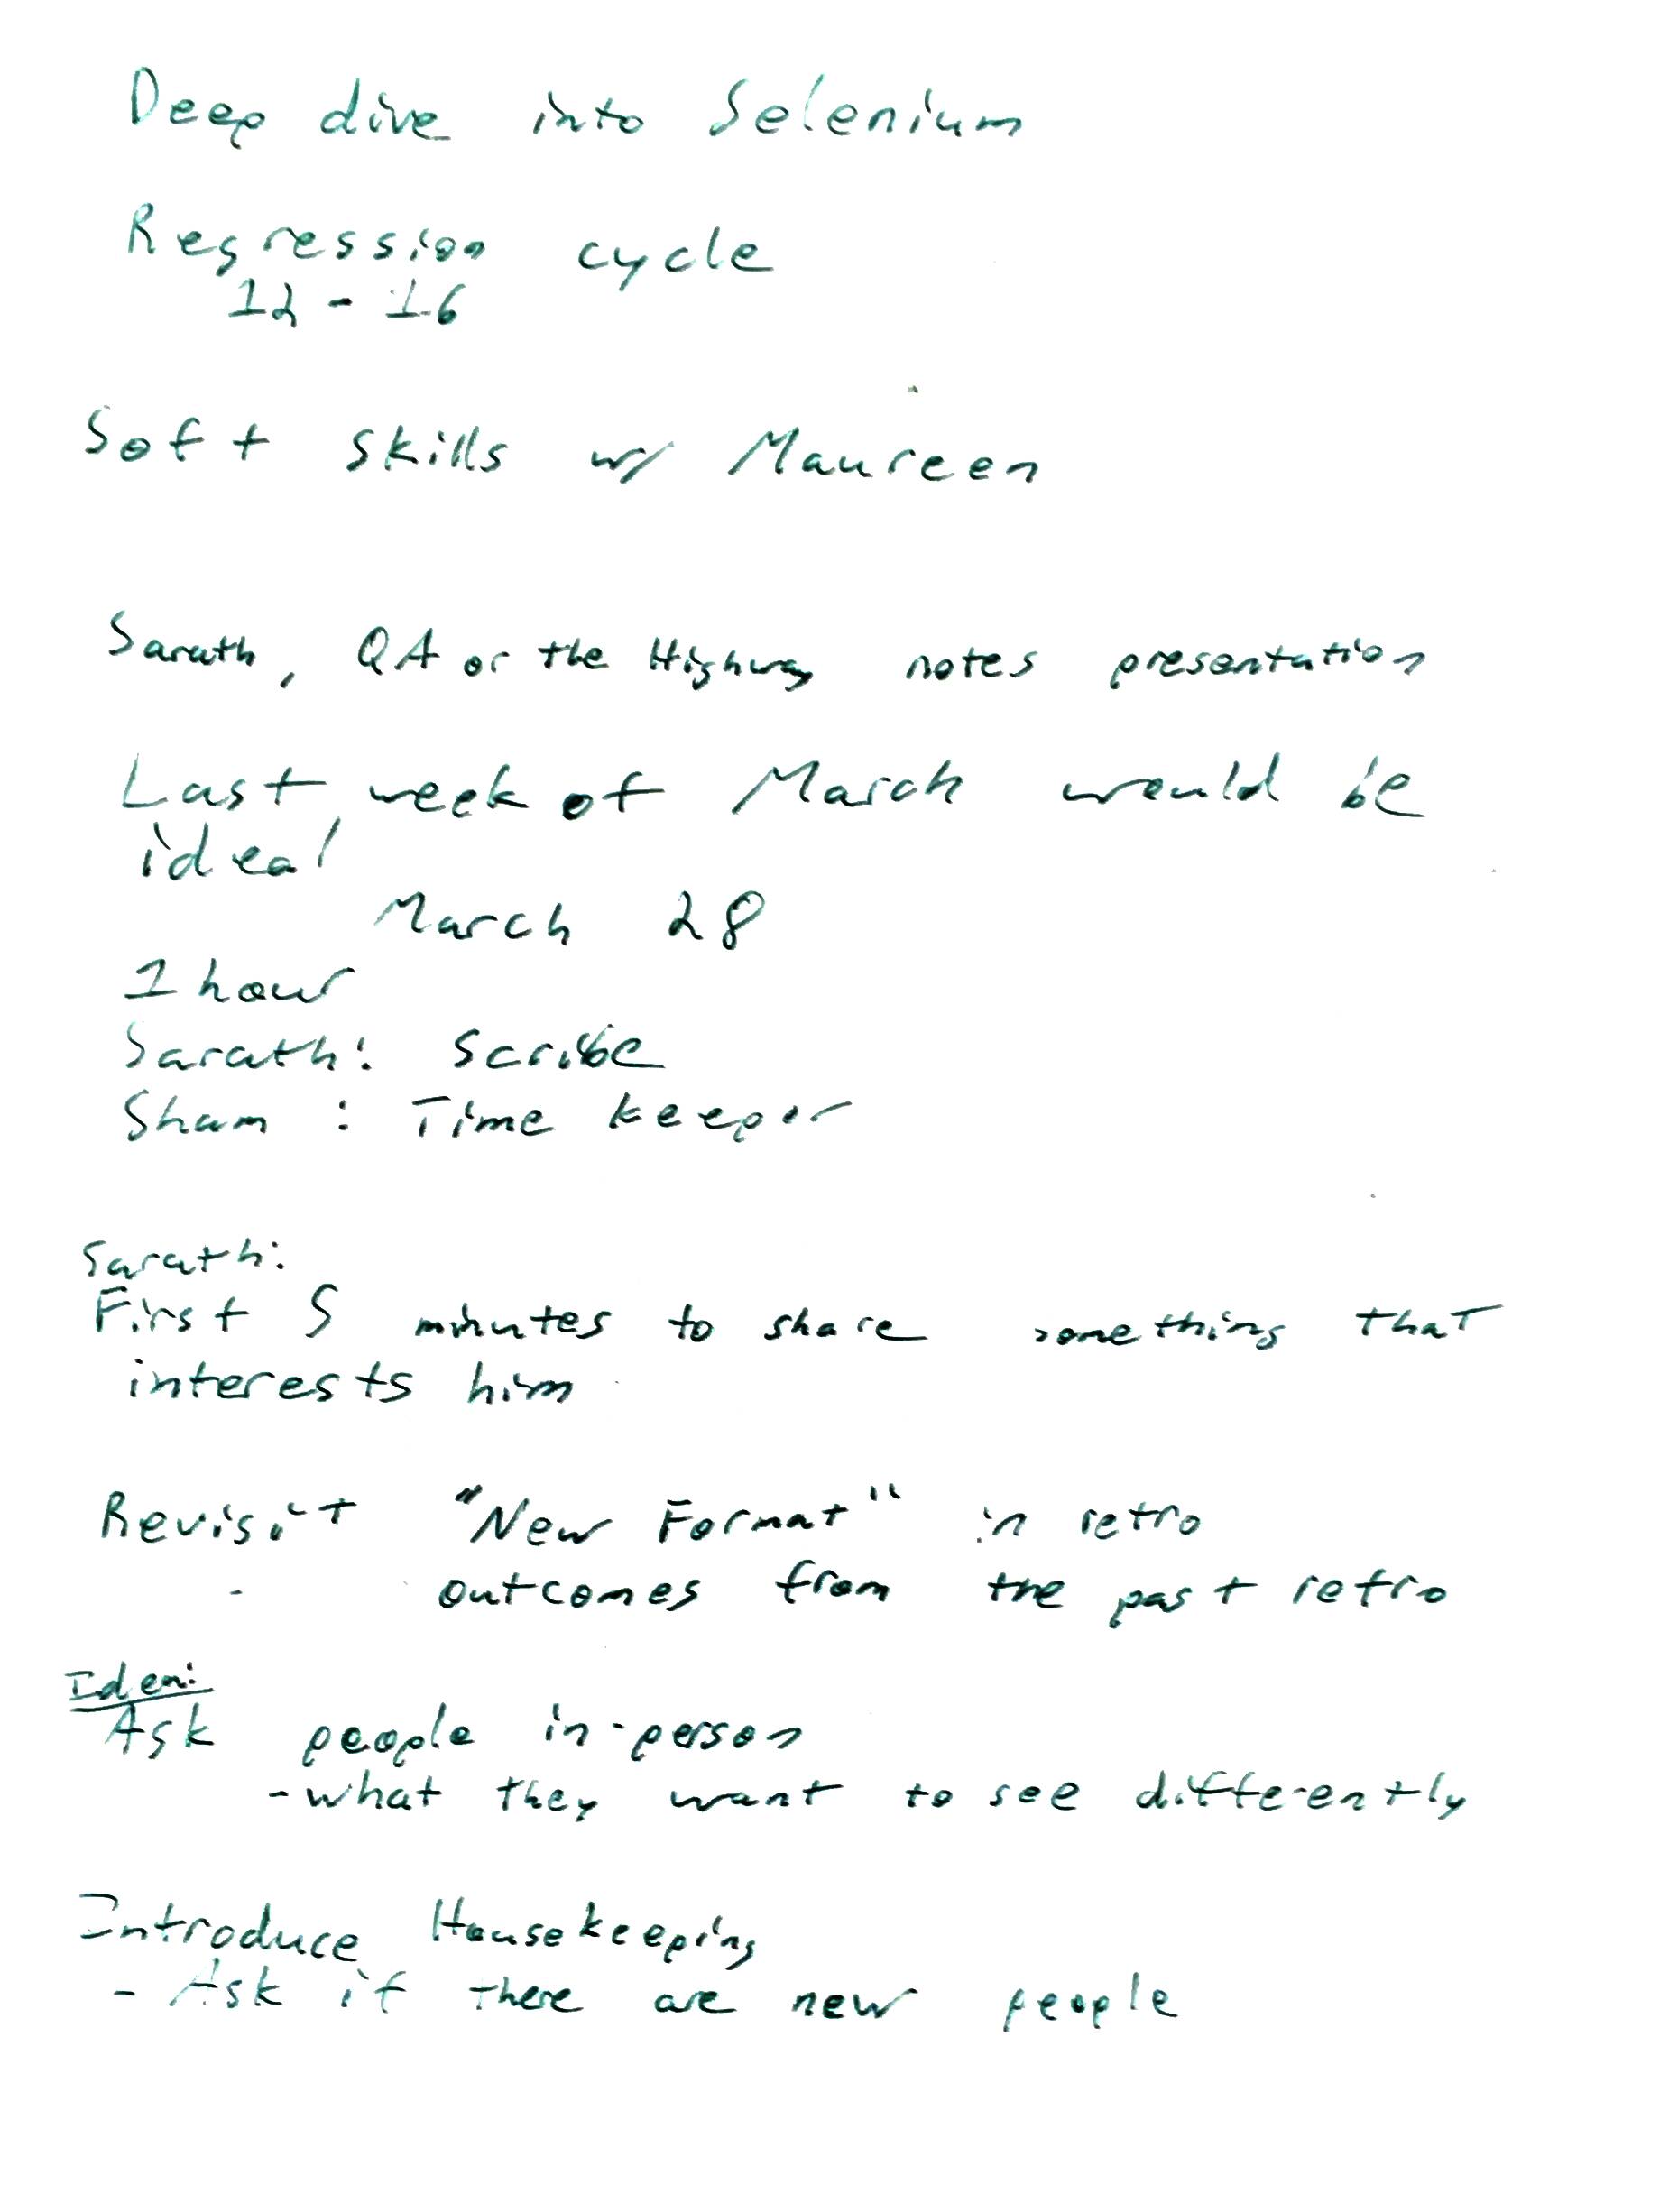 Deep dive into Selenium
Regression cycle
12 - 16
Soft skills w/ Maureen
Sarath, QA or the Highway notes presentation
Last week of March would be
ideal
March 28
1 hour
Sarath: scribe
Sham : Time keeper
Sarath:
First 5 minutes to share something that
interests him
Revisit "New Format" in retro
- outcomes from the past retro
Idea:
Ask people in-person
- what they want to see differently
Introduce Housekeeping
- Ask if there are new people